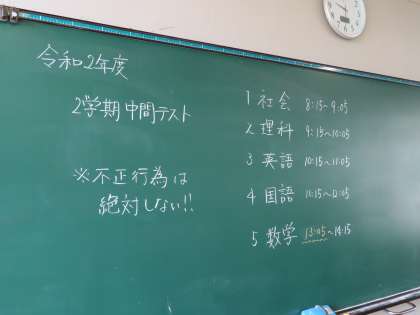 令和2年度
2学期中間テスト
※不正行為は
絶対しない!!
1 社会 8:15~9:05
2 理科 9:15~10:05
3 英語 10:15~11:05
4 国語 11:15~12:05
5 数学 13:05~14:15